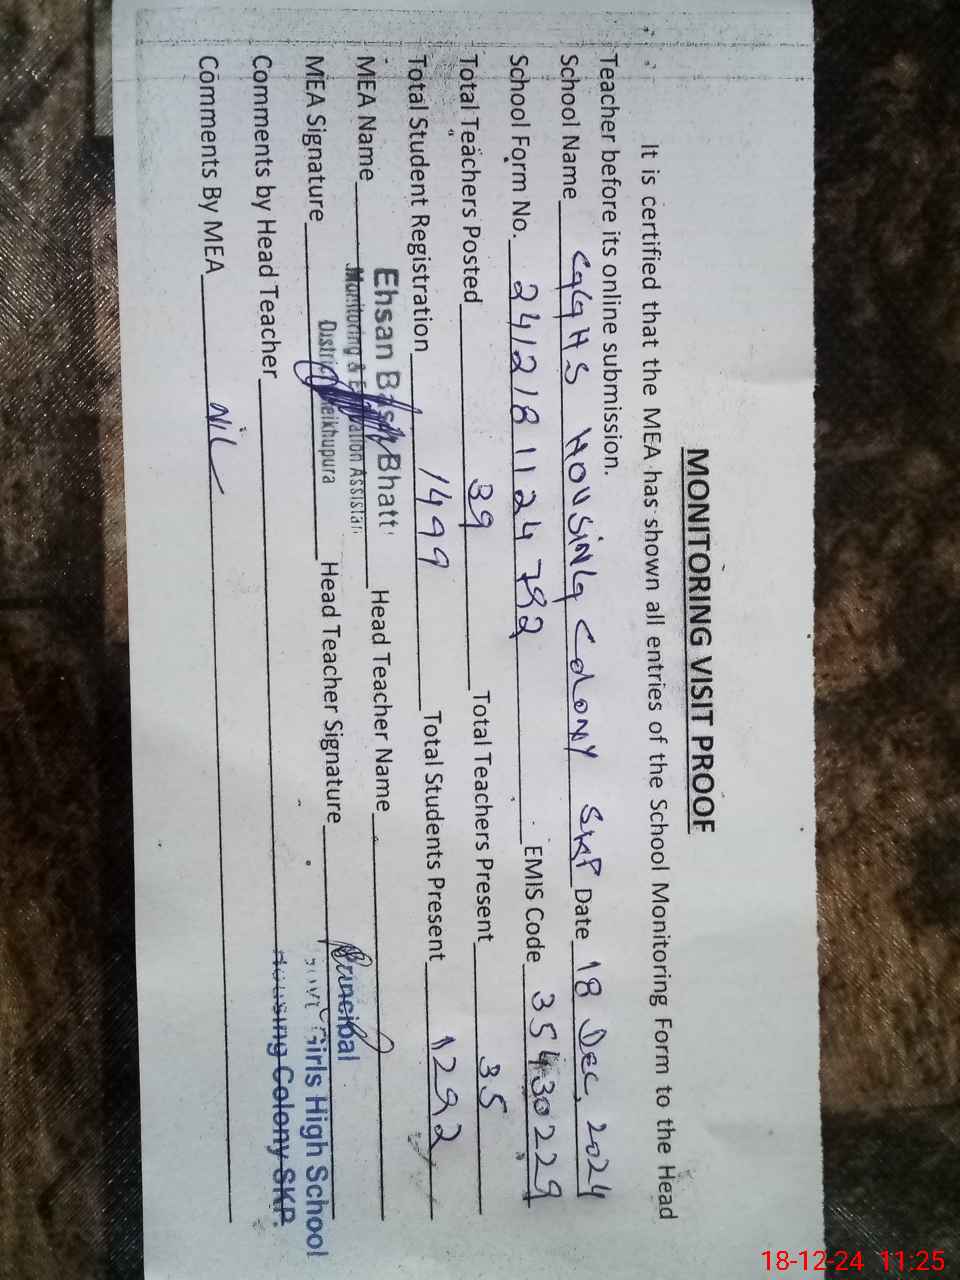 MONITORING VISIT PROOF
It is certified that the MEA has shown all entries of the School Monitoring Form to the Head
Teacher before its online submission.
School Name GGHS HOUSING COLONY SKP Date 18 Dec, 2024
School Form No. 2412181124792 EMIS Code 35430229
Total Teachers Posted 39 Total Teachers Present 35
Total Student Registration 1499 Total Students Present 1292
MEA Name Ehsan Bhatt Head Teacher Name
Monitoring & Evaluation Assistan
MEA Signature District Sheikhupura Head Teacher Signature Principal
Govt Girls High School
Comments by Head Teacher Housing Colony SKP.
Comments By MEA NIL
18-12-24 11:25